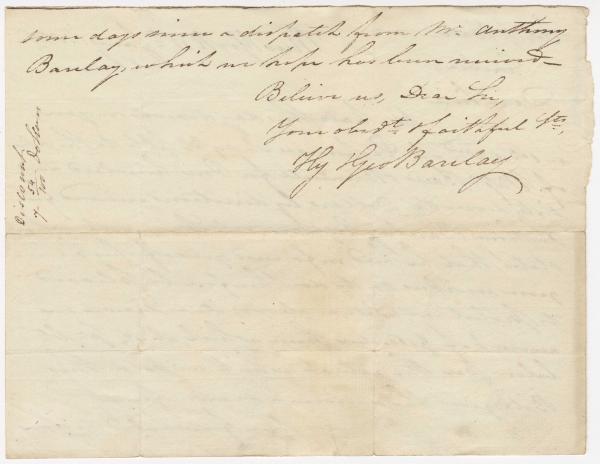 some days since a dispatch from Mr. Anthony
Barclay, which we hope has been received—
Believe us, Dear Sir,
Your obedt. & faithful Sts,
Hy & Geo Barclay
Discount
on
of two Dollars